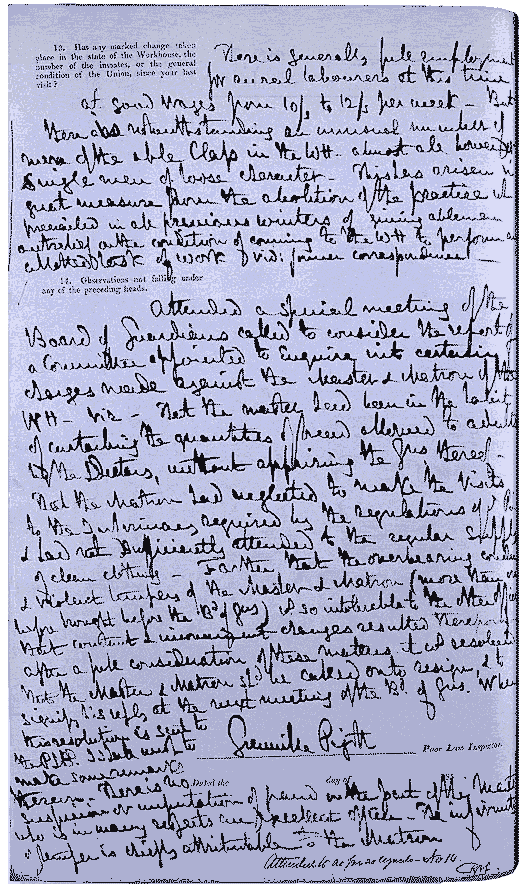 13. Has any marked change taken
place in the state of the Workhouse, the
number of the inmates, or the general
condition of the Union, since your last
visit?
There is generally full employment
for rural labourers at this time
at good wages from 10/ to 12/ per week - But
there is notwithstanding an unusual number of
men of the able Class in the WH - almost all however
single men of loose character - This has arisen in
great measure from the abolition of the practice wh
prevailed in all previous winters of giving ablemen
outrelief on the condition of coming to the WH to perform a
allotted task of work vid: former correspondence -
14. Observations not falling under
any of the preceding heads.
Attended a special meeting of the
Board of Guardians called to consider the report of
a Committee appointed to Enquire into certain
charges made against the Master & Matron of the
WH - viz - That the master had been in the habit
of curtailing the quantities of allowed to
the Dietary, without apprising the Gns thereof -
That the Matron had neglected to make the Visits
to the Infirmaries required by the regulations of
& had not sufficiently attended to the regular Supply
of clean clothing - Farther that the overbearing
& violent tempers of the Master & Matron (more than once
before brought before the Bd of Gns) is so intolerable to the other
that constant & inconvenient changes resulted therefrom
after a full consideration of these matters it was resolved
that the Master & Matron shd be called on to resign & to
signify his reply at the next meeting of the Bd of Gns. When
this resolution is sent to
the PLB I shall wish to
make some remarks
thereon. There is no
Grenville Pigott
Poor Law Inspector.
Dated the day of
suspicion or imputation of fraud on the part of the Master
who is in many respects an excellent officer - The infirmity
of temper is chiefly attributable to the Matron
Attended to as far as regards No 14.